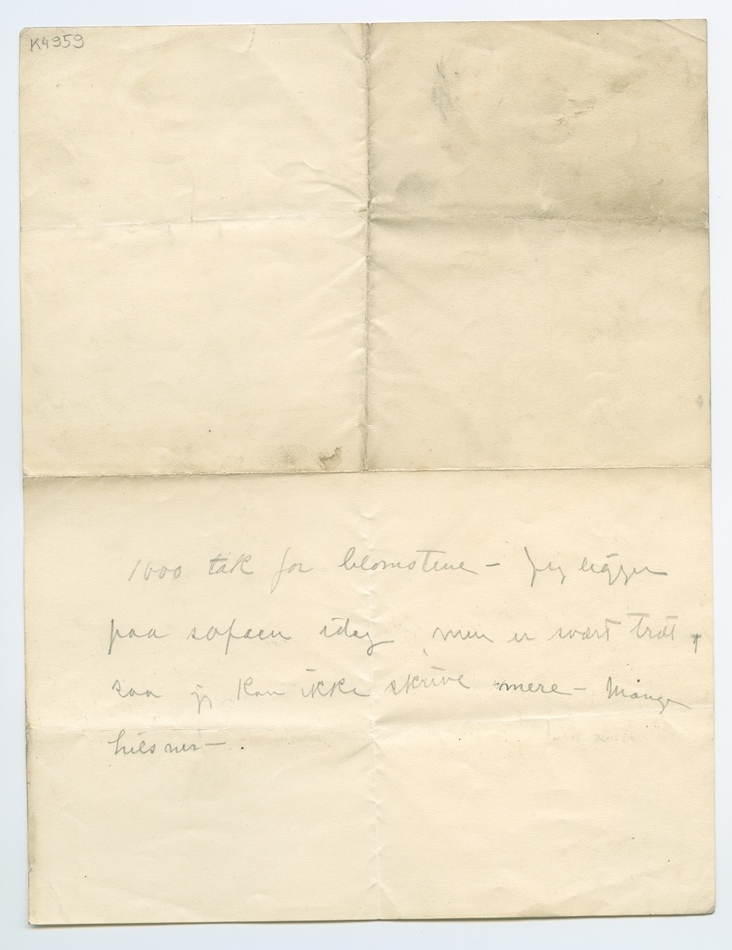 K4959
1000 tak for blomsterne – Jeg ligger
paa sofaen idag, men er svært træt,
saa jeg kan ikke skrive mere – Mange
hilsner – .